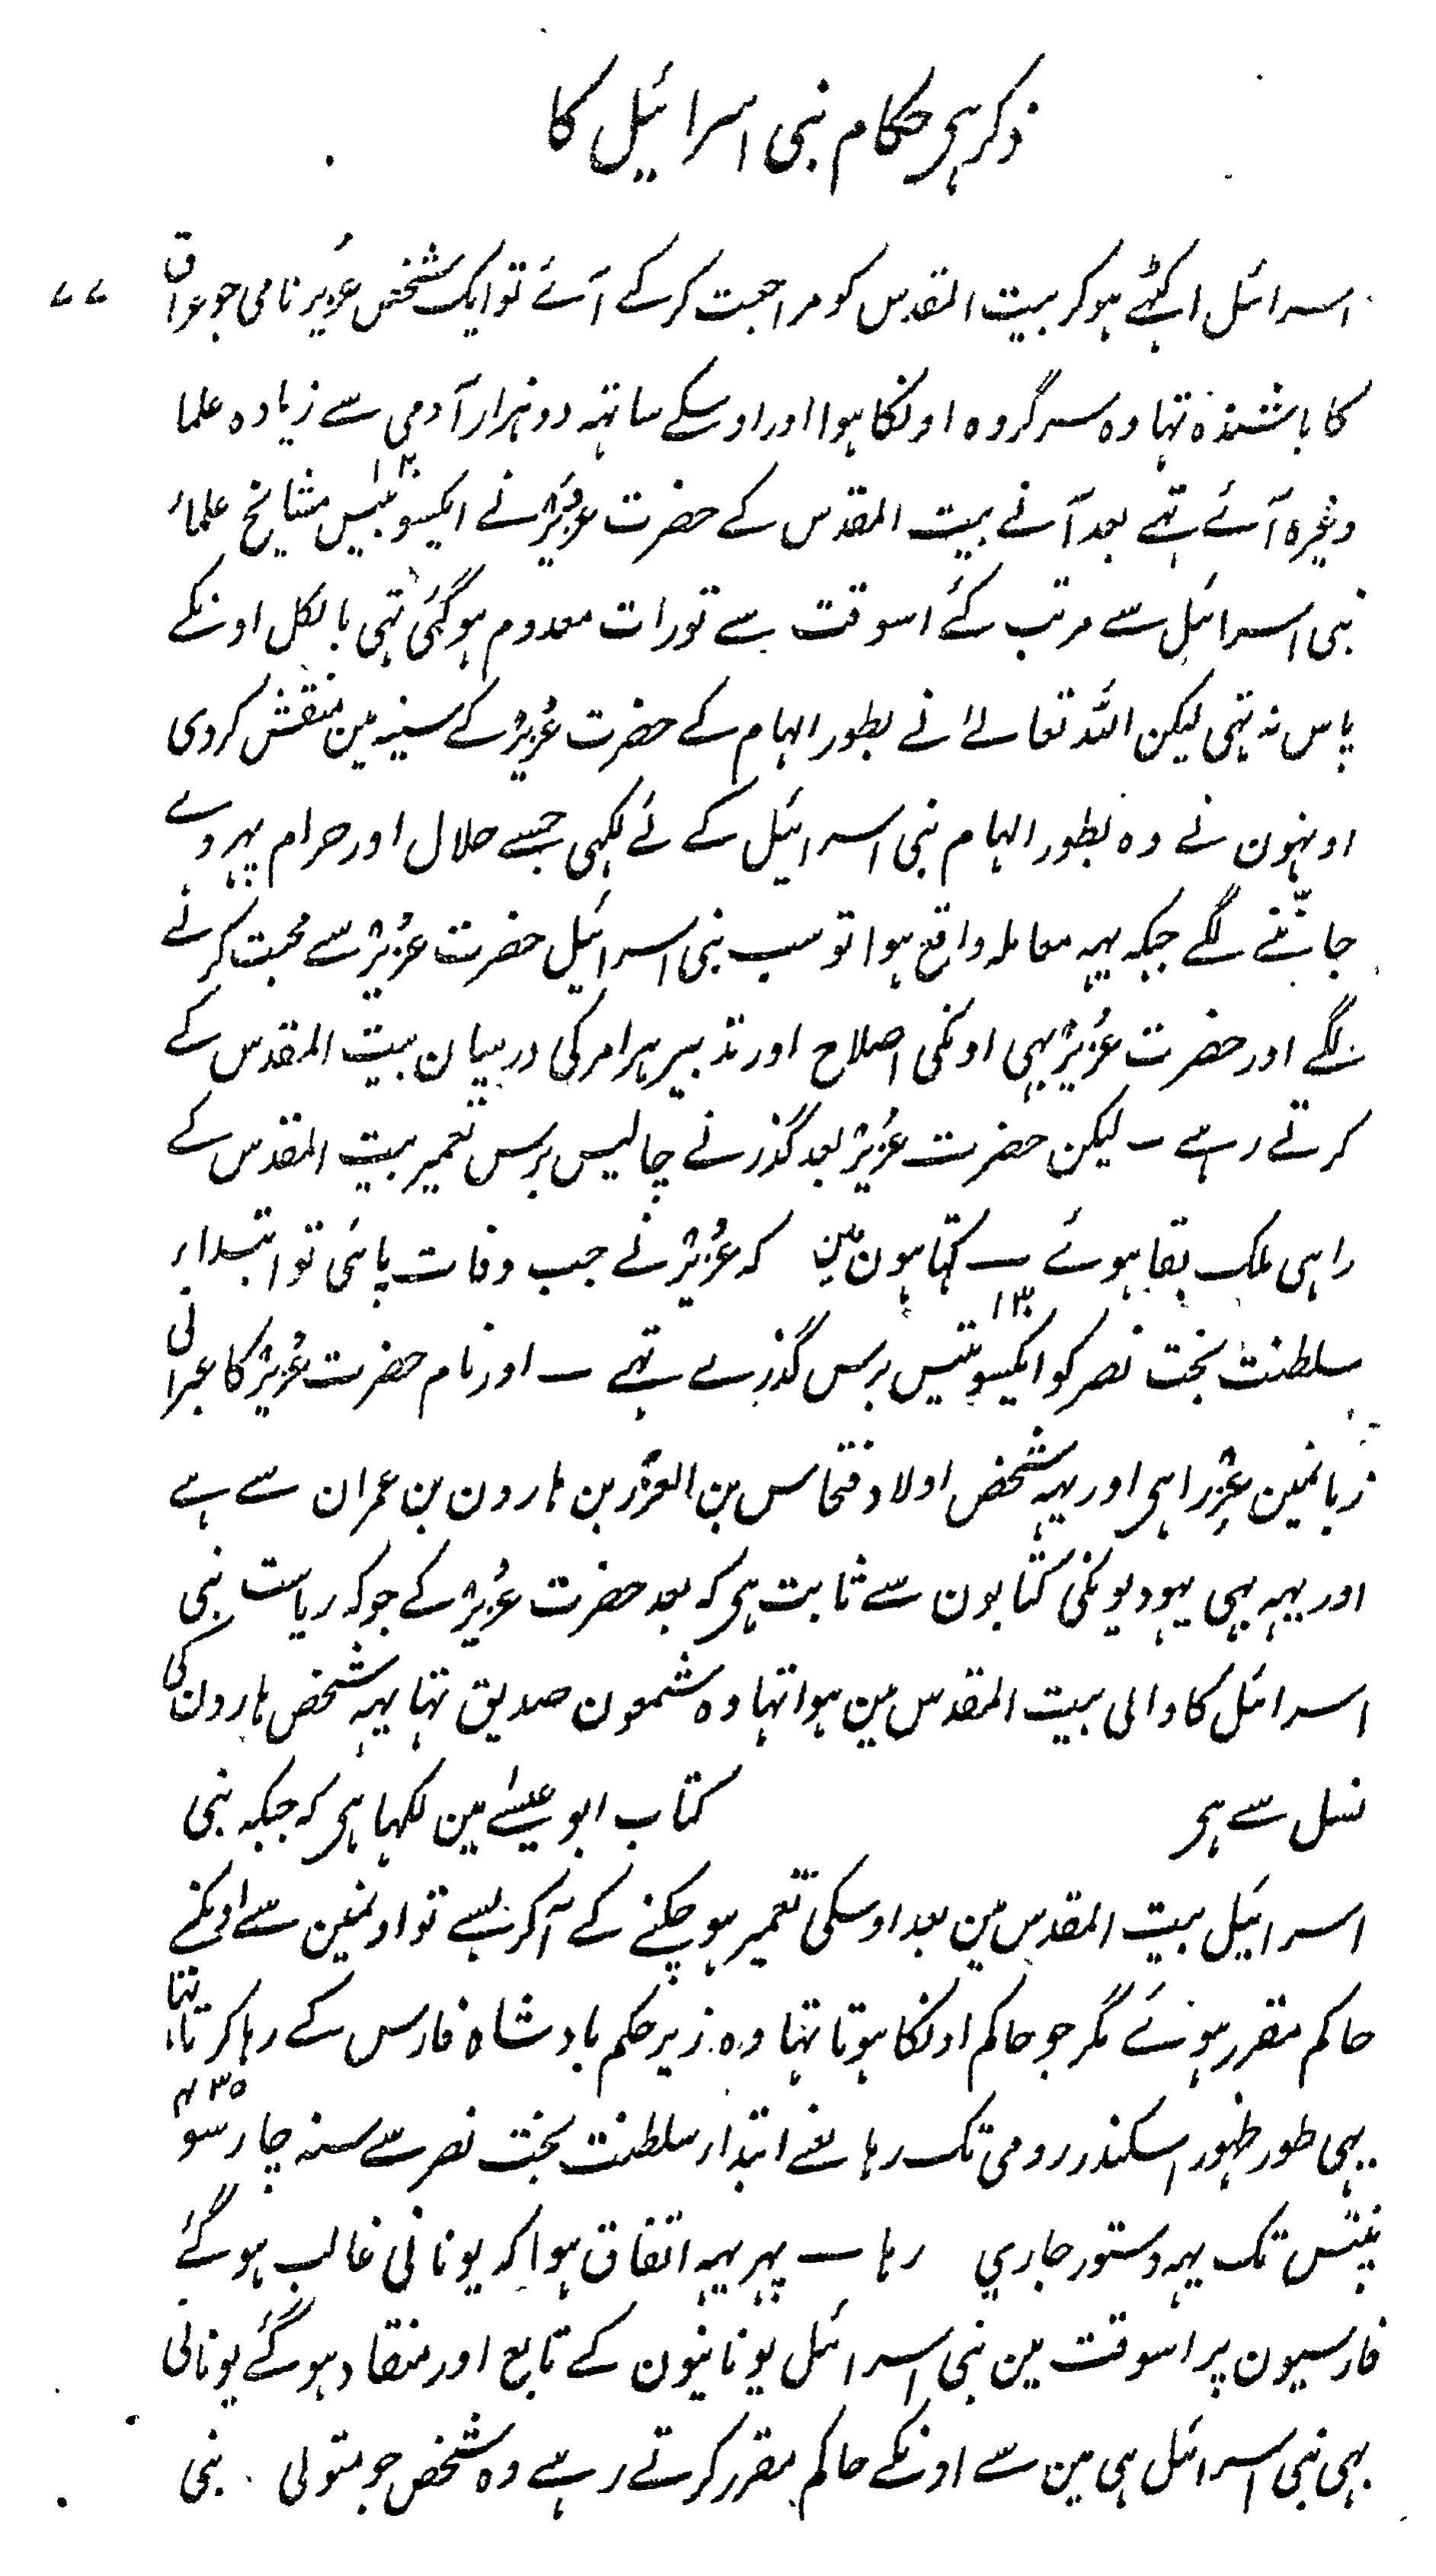 ذکر ہی حکام بنی اسرائیل کا
۷۷
اسرائل اکٹھے ہوکر بیت المقدس کو مراجعت کرکے آئے تو ایک شخص عزیر نامی جو عراق
کا باشندہ تہا وہ سرگروہ اونکا ہوا اور اوسکے ساتہہ دو ہزار آدمی سے زیادہ علما
وغیرہ آئے تہے بعد آنے بیت المقدس کے حضرت عزیر نے ایکسو بیس ۱۲۰ مشایخ علماء
بنی اسرائل سے مرتب کئے اسوقت سے تورات معدوم ہوگئی تہی بالکل اونکے
پاس نہ تہی لیکن اللہ تعالے نے بطور الہام کے حضرت عزیر کے سینہ مین منقش کردی
اونہون نے وہ بطور الہام بنی اسرائیل کے لئے لکہی جسے حلال اور حرام پہر وے
جاننے لگے جبکہ یہہ معاملہ واقع ہوا تو سب بنی اسرائیل حضرت عزیر سے محبت کرنے
لگے اور حضرت عزیر بہی اونکی اصلاح اور تدبیر ہر امر کی درمیان بیت المقدس کے
کرتے رہے ۔ لیکن حضرت عزیر بعد گذرنے چالیس برس تعمیر بیت المقدس کے
راہی ملک بقا ہوئے ۔ کہتا ہون مین کہ عزیر نے جب وفات پائی تو ابتداء
سلطنت بخت نصر کو ایکسو تیس ۱۳۰ برس گذرے تہے ۔ اور نام حضرت عزیر کا عبرانی
زبانمین عزرا ہی اور یہہ شخص اولاد فنحاس بن العزر بن ہارون بن عمران سے ہے
اور یہہ بہی یہودیونکی کتابون سے ثابت ہی کہ بعد حضرت عزیر کے جو کہ ریاست بنی
اسرائل کا والی بیت المقدس مین ہوا تہا وہ شمعون صدیق تہا یہہ شخص ہارون کی
نسل سے ہی کتاب ابو عیسے مین لکہا ہی کہ جبکہ بنی
اسرائیل بیت المقدس مین بعد اوسکی تعمیر ہوچکنے کے آکر بسے تو اونمین سے اونکے
حاکم مقرر ہوئے مگر جو حاکم اونکا ہوتا تہا وہ زیر حکم بادشاہ فارس کے رہا کرتا تہا
یہی طور ظہور اسکندر رومی تک رہا یعنے ابتداء سلطنت بخت نصر سے سنہ چارسو ۴۳۵
پینتس تک یہہ دستور جاري رہا ۔ پہر یہہ اتفاق ہوا کہ یونانی غالب ہوگئے
فارسیون پر اسوقت مین بنی اسرائل یونانیون کے تابع اور منقاد ہوگئے یونانی
بہی بنی اسرائل ہی مین سے اونکے حاکم مقرر کرتے رہے وہ شخص جو متولی بنی